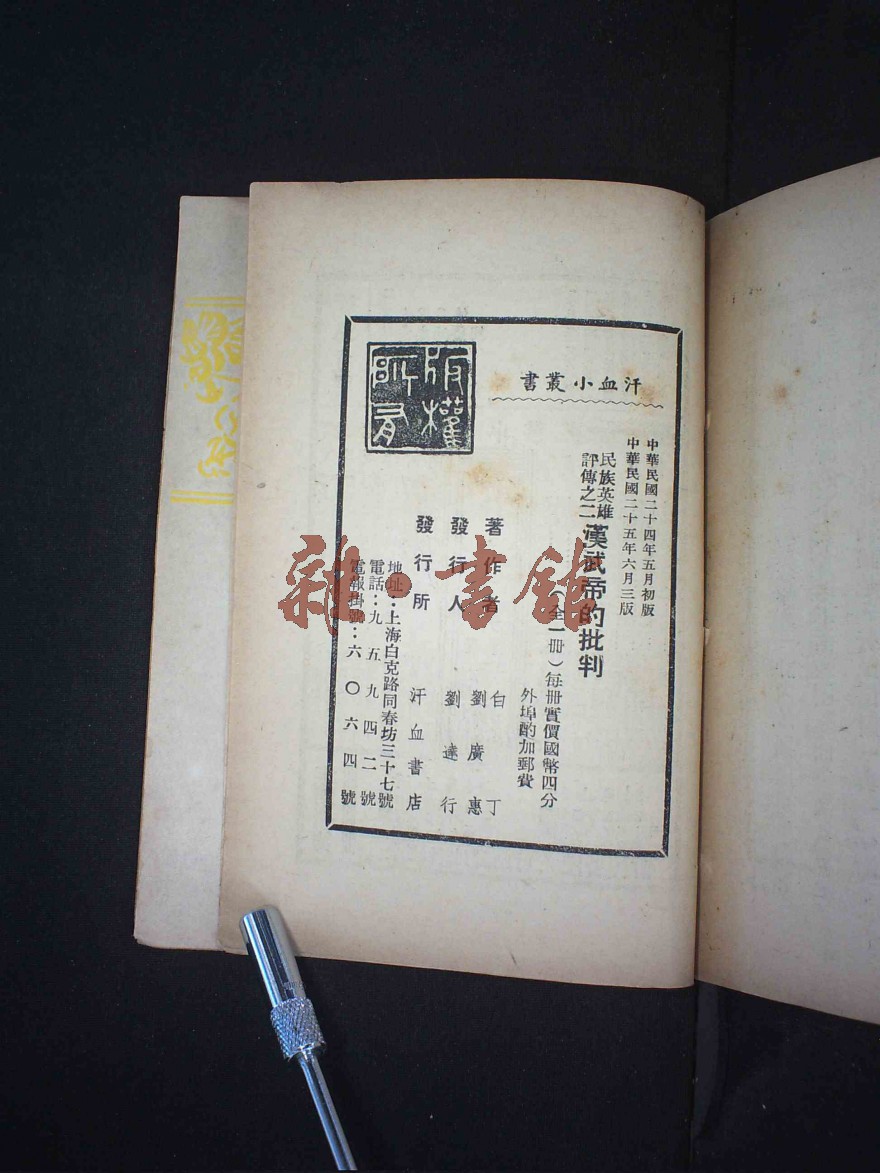 汗血小叢書
中華民國二十四年五月初版
中華民國二十五年六月三版
民族英雄
評傳之二
漢武帝的批判
（全一冊）每冊實價國幣四分
外埠酌加郵費
著作者 白丁
劉廣惠
發行人 劉達行
發行所 汗血書店
地址：上海白克路同春坊三十七號
電話：九五九四二號
電報掛號：六〇六四號
版權
所有
雜·書館